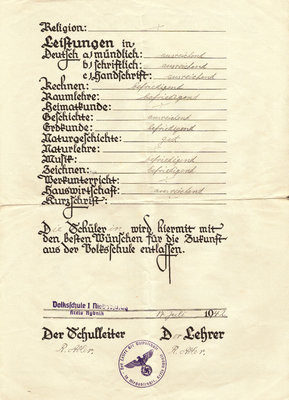 Religion: -
Leistungen in
Deutsch a) mündlich: ausreichend
b) schriftlich: ausreichend
c) Handschrift: ausreichend
Rechnen: befriedigend
Raumlehre: befriedigend
Heimatkunde: -
Geschichte: ausreichend
Erdkunde: befriedigend
Naturgeschichte: gut
Naturlehre: -
Musik: befriedigend
Zeichnen: befriedigend
Werkunterricht: -
Hauswirtschaft: ausreichend
Kurzschrift: -
Die Schülerin wird hiermit mit
den besten Wünschen für die Zukunft
aus der Volksschule entlassen.
Volksschule I
Kreis Rybnik
17. Juli 194
Der Schulleiter Der Lehrer
R. Adler. R. Adler.